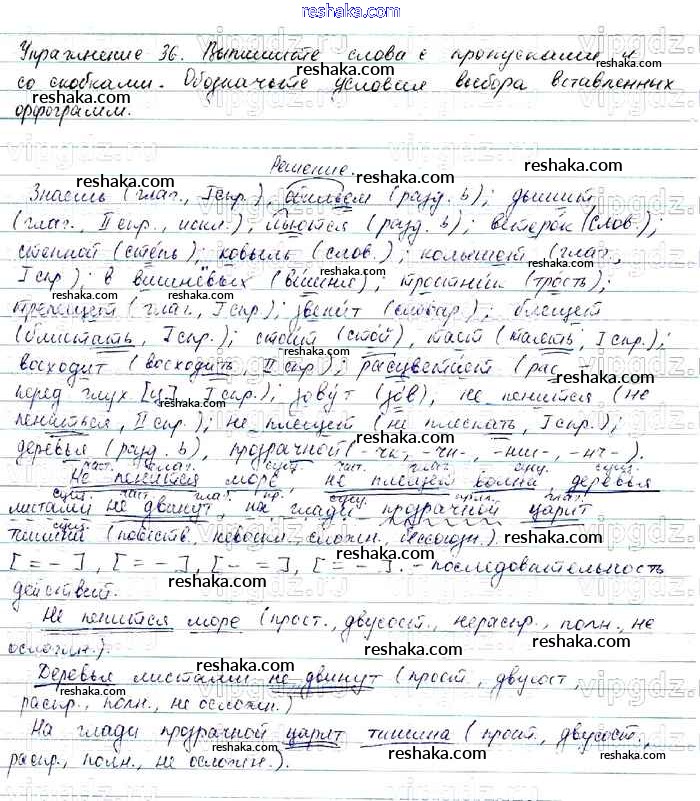 reshaka.com
Упражнение 36. Выпишите слова с пропусками и
со скобками. Обозначьте условия выбора вставленных
орфограмм.
Решение.
Знаешь (глаг., I спр.), обильем (разд. ь); дышит,
(глаг., II спр., искл.); льются (разд. ь); ветерок (слов.);
степной (степь); ковыль (слов.); колышет (глаг.,
I спр.); в вишнёвых (вишня), тростник (трость);
трепещет (глаг., I спр.); звенит (словар.); блещет
(блистать, I спр.); стоит (стой), тает (таять, I спр.);
восходит (восходить, II спр.); расцветает (рас –
перед глух [ц], I спр.); зовут (зов), не пенится (не
пениться, II спр.); не плещет (не плескать, I спр.);
деревья (разд. ь), прозрачной (-чк-, -чн-, -нч-).
част. глаг. сущ. част. глаг. сущ. сущ.
Не пенится море, не плещет волна, деревья
сущ. част. глаг. пр. сущ. прил. глаг.
листами не двинут, на глади прозрачной царит
сущ.
тишина (повеств., невоскл., сложн., бессоюзн.).
[= –], [= –], [– =], [= –]. – последовательность
действий.
Не пенится море (прост., двусост., нераспр., полн., не
осложн.).
Деревья листами не двинут (прост., двусост.,
распр., полн., не осложн.)
На глади прозрачной царит тишина (прост., двусост.,
распр., полн., не осложн.).
vipgdz.com